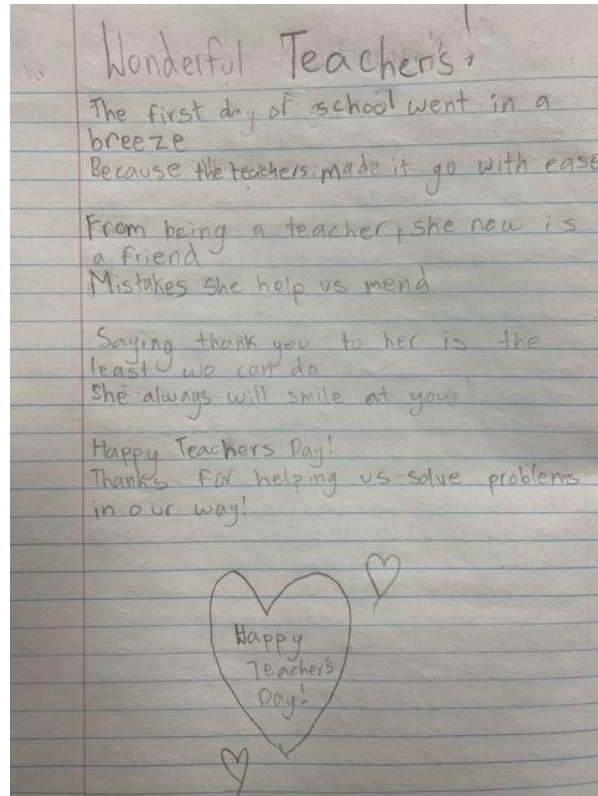 Wonderful Teacher's!
The first day of school went in a
breeze
Because the teachers made it go with ease
From being a teacher, she now is
a friend
Mistakes she help us mend
Saying thank you to her is the
least we can do
She always will smile at you!
Happy Teachers Day!
Thanks for helping us solve problems
in our way!
Happy
Teacher's
Day!